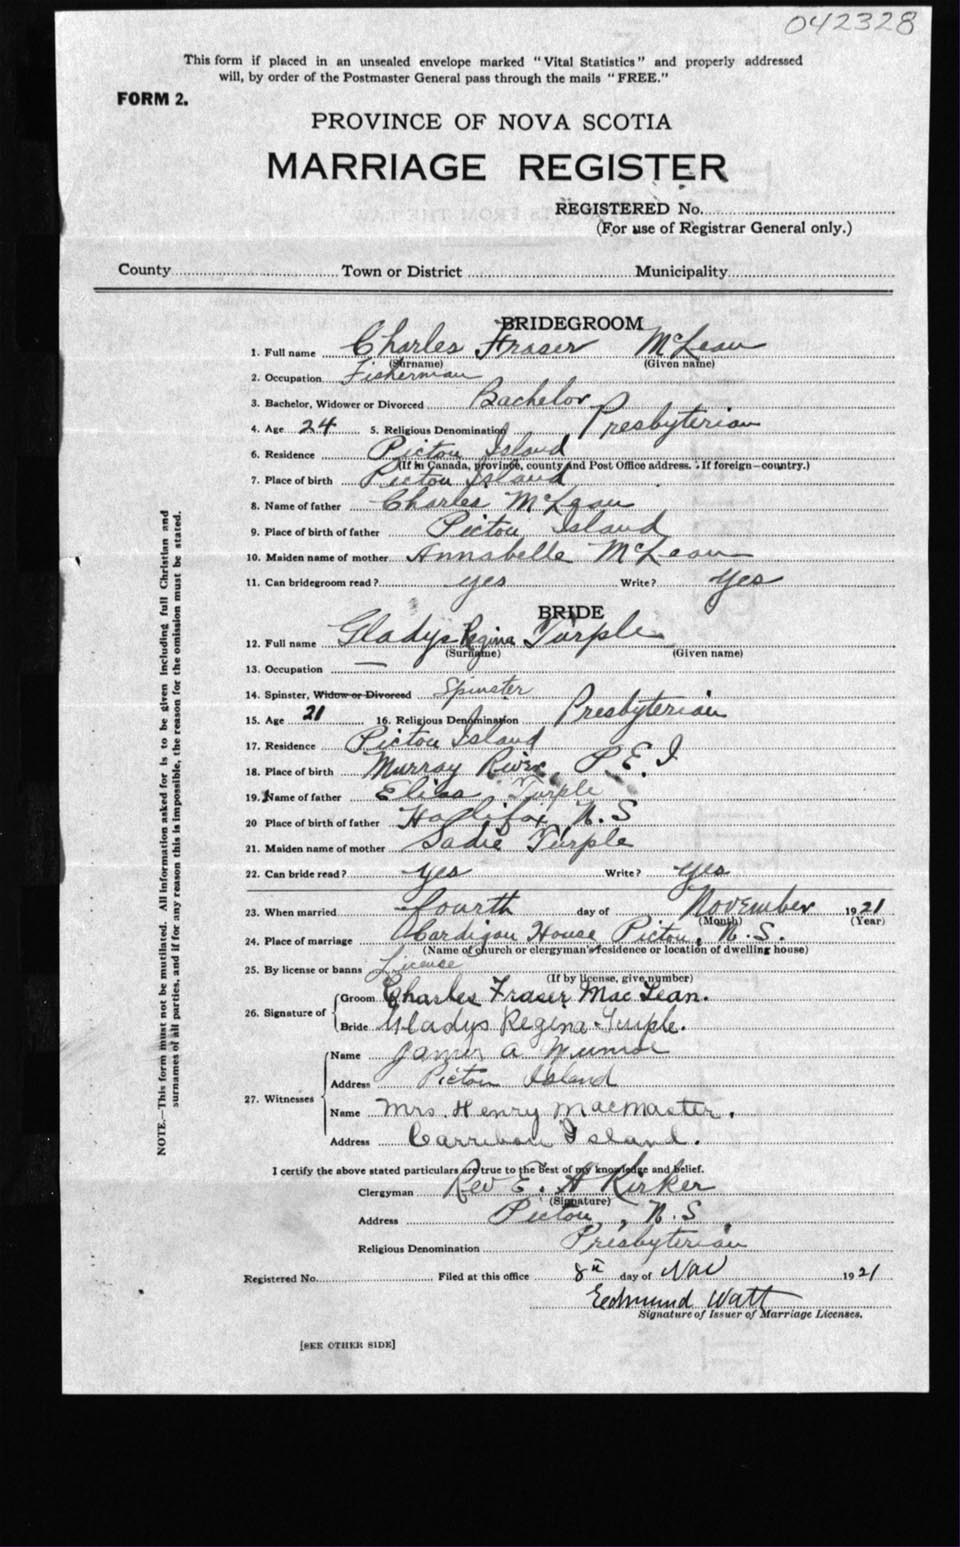 042328
This form if placed in an unsealed envelope marked "Vital Statistics" and properly addressed
will, by order of the Postmaster General pass through the mails "FREE."
FORM 2.
PROVINCE OF NOVA SCOTIA
MARRIAGE REGISTER
REGISTERED No.
(For use of Registrar General only.)
County Town or District Municipality
BRIDEGROOM
1. Full name Charles Fraser McLean
(Surname) (Given name)
2. Occupation Fisherman
3. Bachelor, Widower or Divorced Bachelor
4. Age 24 5. Religious Denomination Presbyterian
6. Residence Pictou Island
(If in Canada, province, county and Post Office address. If foreign—country.)
7. Place of birth Pictou Island
8. Name of father Charles McLean
9. Place of birth of father Pictou Island
10. Maiden name of mother Annabelle McLean
11. Can bridegroom read? yes Write? yes
BRIDE
12. Full name Gladys Regina Turple
(Surname) (Given name)
13. Occupation —
14. Spinster, Widow or Divorced Spinster
15. Age 21 16. Religious Denomination Presbyterian
17. Residence Pictou Island
18. Place of birth Murray River, P.E.I
19. Name of father Turple
20 Place of birth of father Halifax N.S
21. Maiden name of mother Sadie Turple
22. Can bride read? yes Write? yes
23. When married fourth day of November 1921
(Month) (Year)
24. Place of marriage Cardigan House Pictou, N.S.
(Name of church or clergyman's residence or location of dwelling house)
25. By license or banns License
(If by license, give number)
26. Signature of
Groom Charles Fraser MacLean.
Bride Gladys Regina Turple.
27. Witnesses
Name James A Munroe
Address Pictou Island
Name Mrs. Henry MacMaster.
Address Carribou Island.
I certify the above stated particulars are true to the best of my knowledge and belief.
Clergyman Rev E. A Kirker
(Signature)
Address Pictou, N.S.
Religious Denomination Presbyterian
Registered No. Filed at this office 8th day of Nov 1921
Eedmund Watt
Signature of Issuer of Marriage Licenses.
[SEE OTHER SIDE]
NOTE.—This form must not be mutilated. All information asked for is to be given including full Christian and
surnames of all parties, and if for any reason this is impossible, the reason for the omission must be stated.